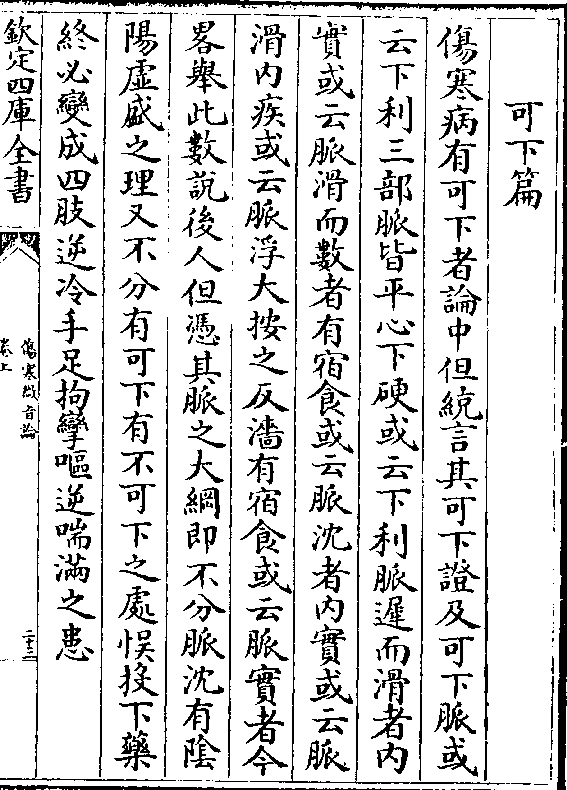 可下篇
傷寒病有可下者論中但統言其可下證及可下脈或
云下利三部脈皆平心下硬或云下利脈遲而滑者内
實或云脈滑而數者有宿食或云脈沈者内實或云脈
滑内疾或云脈浮大按之反濇有宿食或云脈實者今
畧舉此數說後人但憑其脈之大綱即不分脈沈有陰
陽虛盛之理又不分有可下有不可下之處悞投下藥
終必變成四肢逆冷手足拘攣嘔逆喘滿之患
欽定四庫全書
傷寒微旨論
卷上
二十三